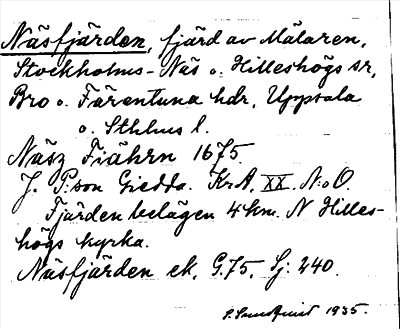 Näsfjärden, fjärd av Mälaren,
Stockholms-Näs o. Hilleshögs sr,
Bro o. Färentuna hdr, Uppsala
o. Sthlms l.
Näsz Fiährn 1675.
J. P:son Giedda. KrA, XX. N:o O.
Fjärden belägen 4 km. N Hilles-
högs kyrka.
Näsfjärden ek. G.75, Sj. 240.
1935.